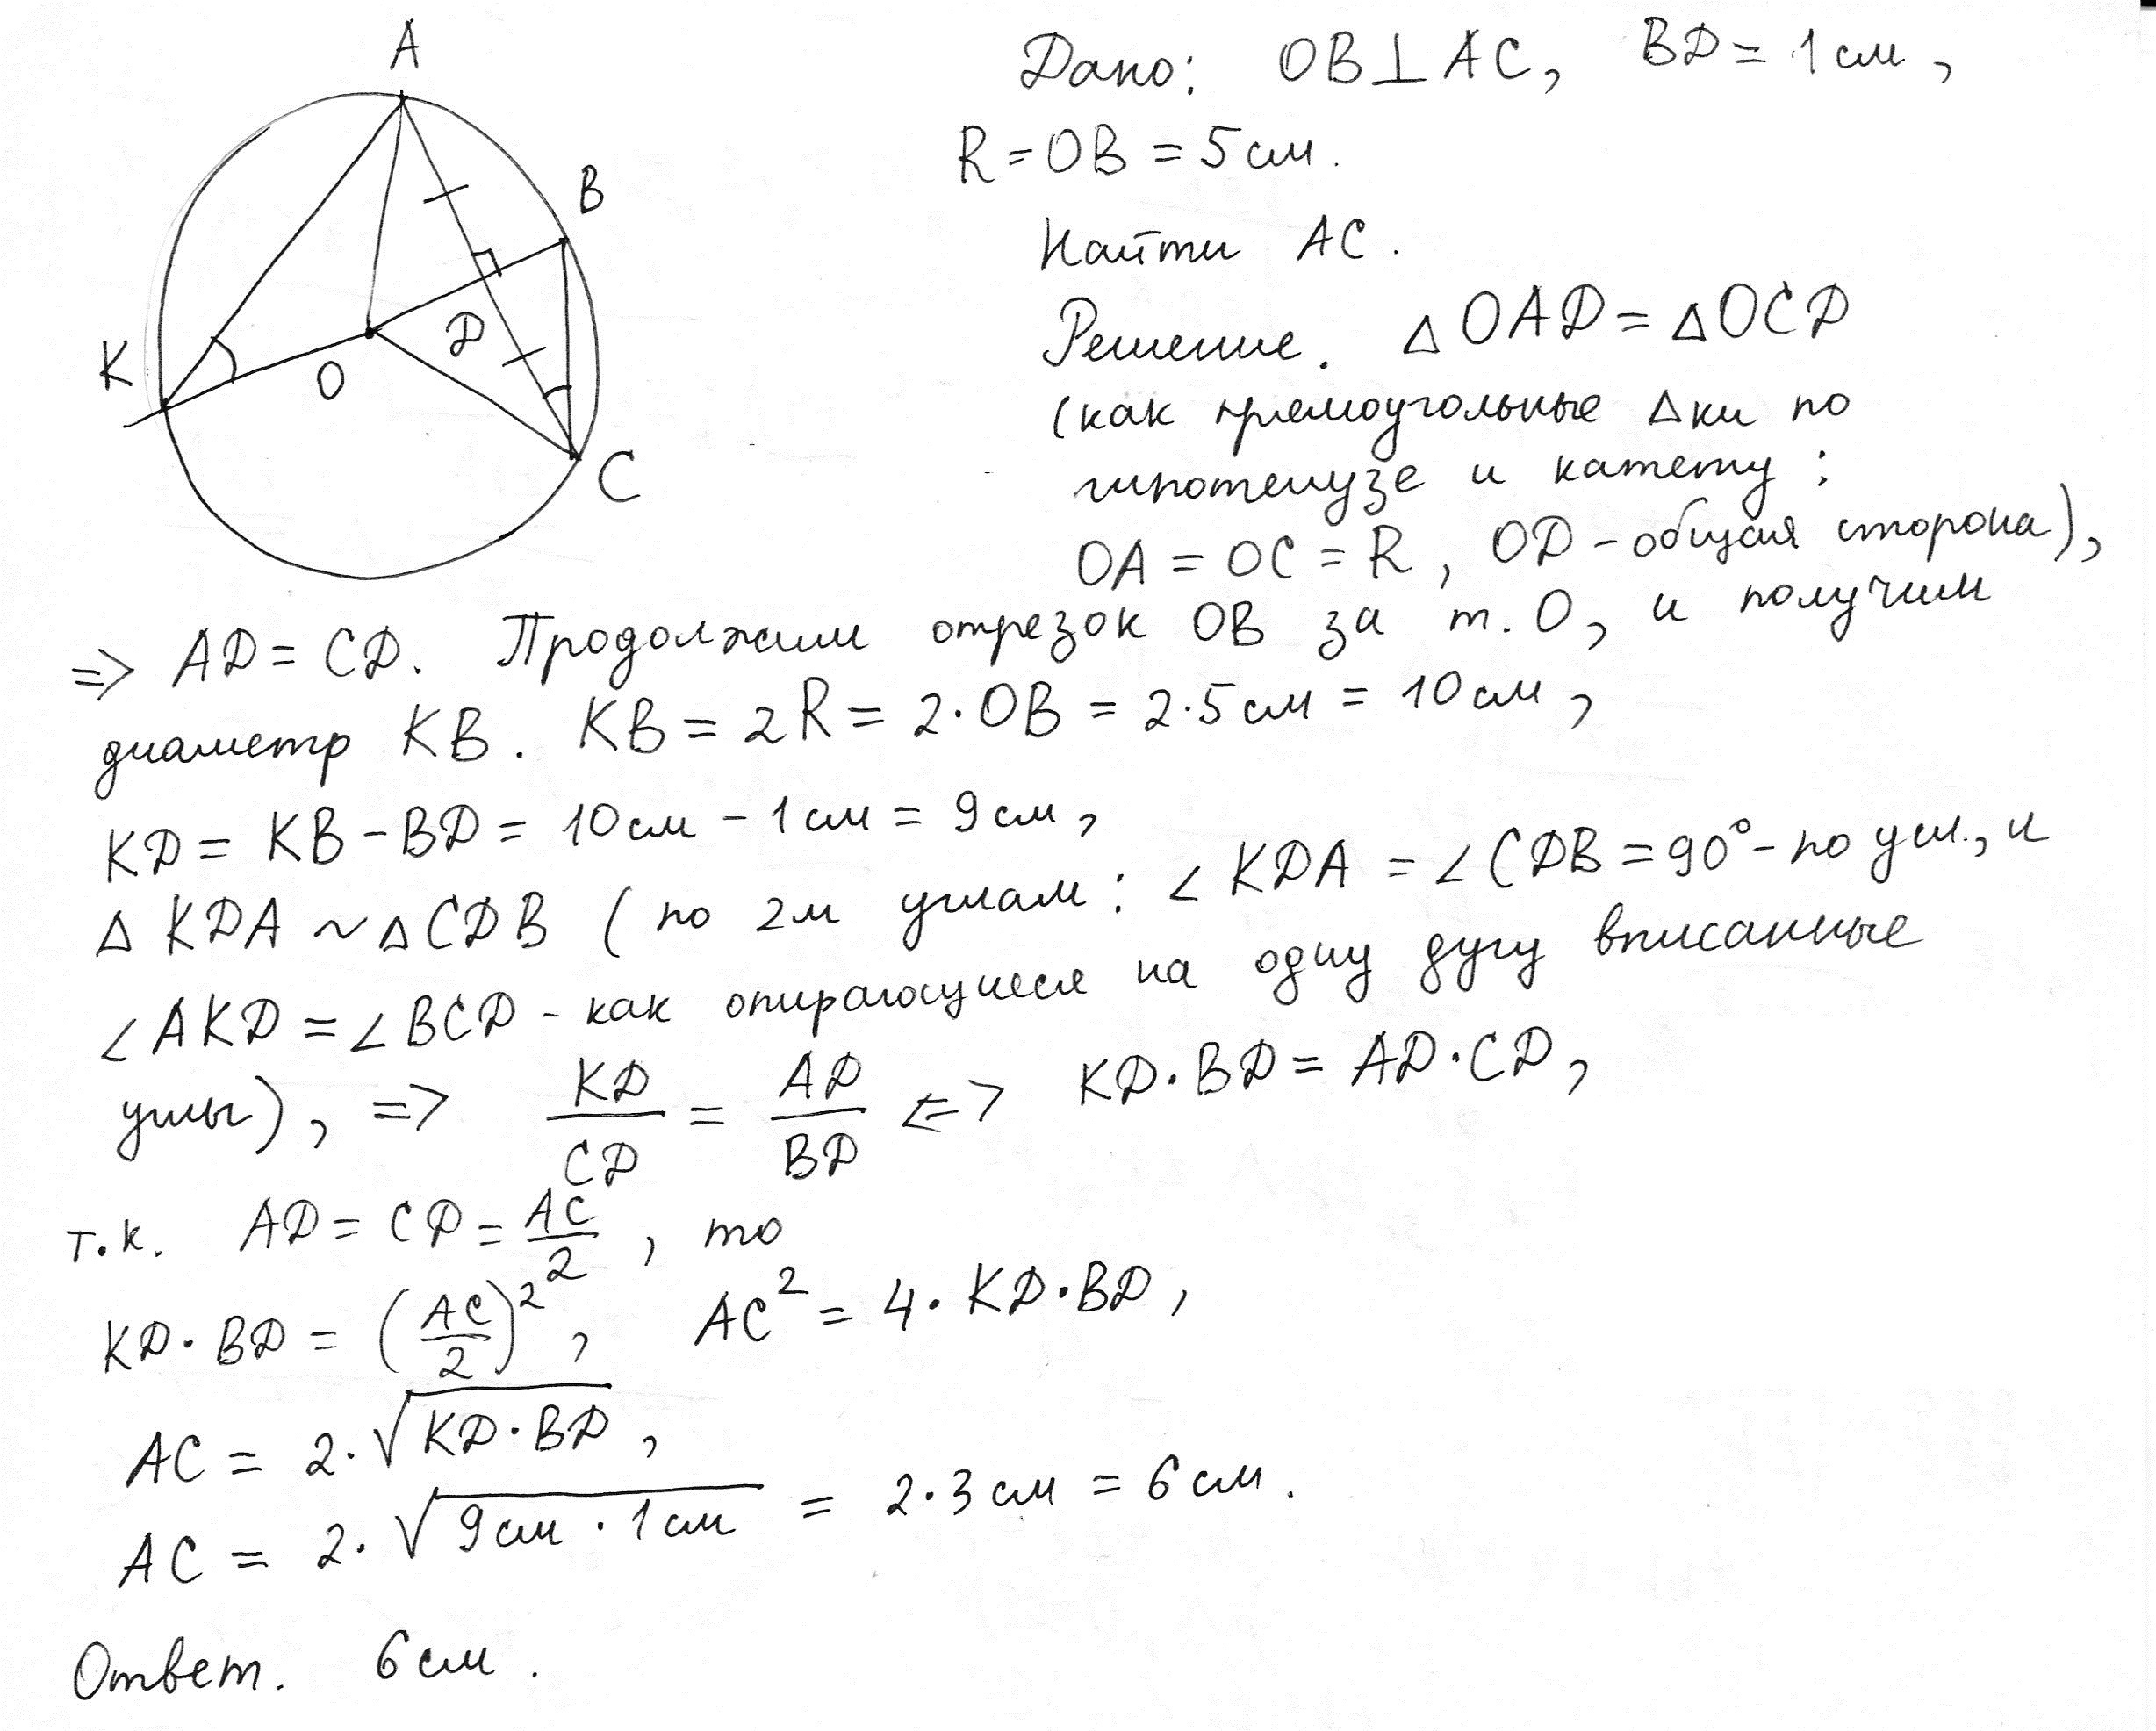 A
B
K
O
D
C
Дано: OB⊥AC, BD = 1 см,
R = OB = 5 см.
Найти AC.
Решение. △OAD = △OCD
(как прямоугольные △ки по
гипотенузе и катету:
OA = OC = R, OD - общая сторона),
=> AD = CD. Продолжим отрезок OB за т. O, и получим
диаметр KB. KB = 2R = 2·OB = 2·5 см = 10 см,
KD = KB - BD = 10 см - 1 см = 9 см,
△KDA ~ △CDB (по 2м углам: ∠KDA = ∠CDB = 90° - по усл., и
∠AKD = ∠BCD - как опирающиеся на одну дугу вписанные
углы), => KD/CD = AD/BD <=> KD·BD = AD·CD,
т.к. AD = CD = AC/2, то
KD·BD = (AC/2)², AC² = 4·KD·BD,
AC = 2·√(KD·BD),
AC = 2·√(9 см · 1 см) = 2·3 см = 6 см.
Ответ. 6 см.